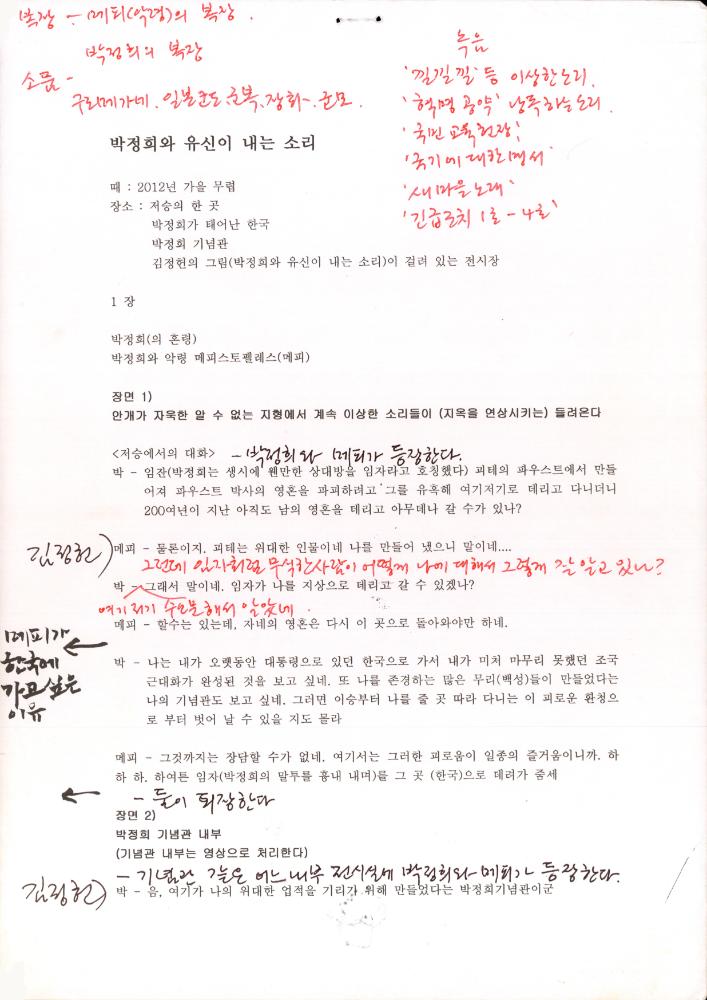 복장 - 메피(악령)의 복장.
박정희의 복장
소품 -
구리메가네. 일본군도, 군복, 장화-. 군모.
녹음
'낄낄낄' 등 이상한 소리.
'혁명 공약' 낭독하는 소리.
'국민 교육헌장'
'국기에 대한 맹서'
'새마을 노래'
'긴급조치 1호 - 4호'
박정희와 유신이 내는 소리
때 : 2012년 가을 무렵
장소 : 저승의 한 곳
박정희가 태어난 한국
박정희 기념관
김정헌의 그림(박정희와 유신이 내는 소리)이 걸려 있는 전시장
1 장
박정희(의 혼령)
박정희와 악령 메피스토펠레스(메피)
장면 1)
안개가 자욱한 알 수 없는 지형에서 계속 이상한 소리들이 (지옥을 연상시키는) 들려온다
<저승에서의 대화> - 박정희와 메피가 등장한다.
박 - 임잔(박정희는 생시에 웬만한 상대방을 임자라고 호칭했다) 괴테의 파우스트에서 만들
어져 파우스트 박사의 영혼을 파괴하려고 그를 유혹해 여기저기로 데리고 다니더니
200여년이 지난 아직도 남의 영혼을 데리고 아무데나 갈 수가 있나?
김정헌) 메피 - 물론이지. 괴테는 위대한 인물이네 나를 만들어 냈으니 말이네....
그런데 임자처럼 무식한 사람이 어떻게 나에 대해서 그렇게 잘 알고 있나?
박 - 그래서 말이네. 임자가 나를 지상으로 데리고 갈 수 있겠나?
여기저기 수소문해서 알았네.
메피 - 할수는 있는데, 자네의 영혼은 다시 이 곳으로 돌아와야만 하네.
메피가
한국에
가고 싶은
이유
박 - 나는 내가 오랫동안 대통령으로 있던 한국으로 가서 내가 미처 마무리 못했던 조국
근대화가 완성된 것을 보고 싶네. 또 나를 존경하는 많은 무리(백성)들이 만들었다는
나의 기념관도 보고 싶네. 그러면 이승부터 나를 줄 곳 따라 다니는 이 괴로운 환청으
로 부터 벗어 날 수 있을 지도 몰라
메피 - 그것까지는 장담할 수가 없네. 여기서는 그러한 괴로움이 일종의 즐거움이니까. 하
하 하. 하여튼 임자(박정희의 말투를 흉내 내며)를 그 곳 (한국)으로 데려가 줌세
- 둘이 퇴장한다
장면 2)
박정희 기념관 내부
(기념관 내부는 영상으로 처리한다)
- 기념관 같은 어느 내부 전시실에 박정희와 메피가 등장한다.
김정헌) 박 - 음, 여기가 나의 위대한 업적을 기리기 위해 만들었다는 박정희기념관이군